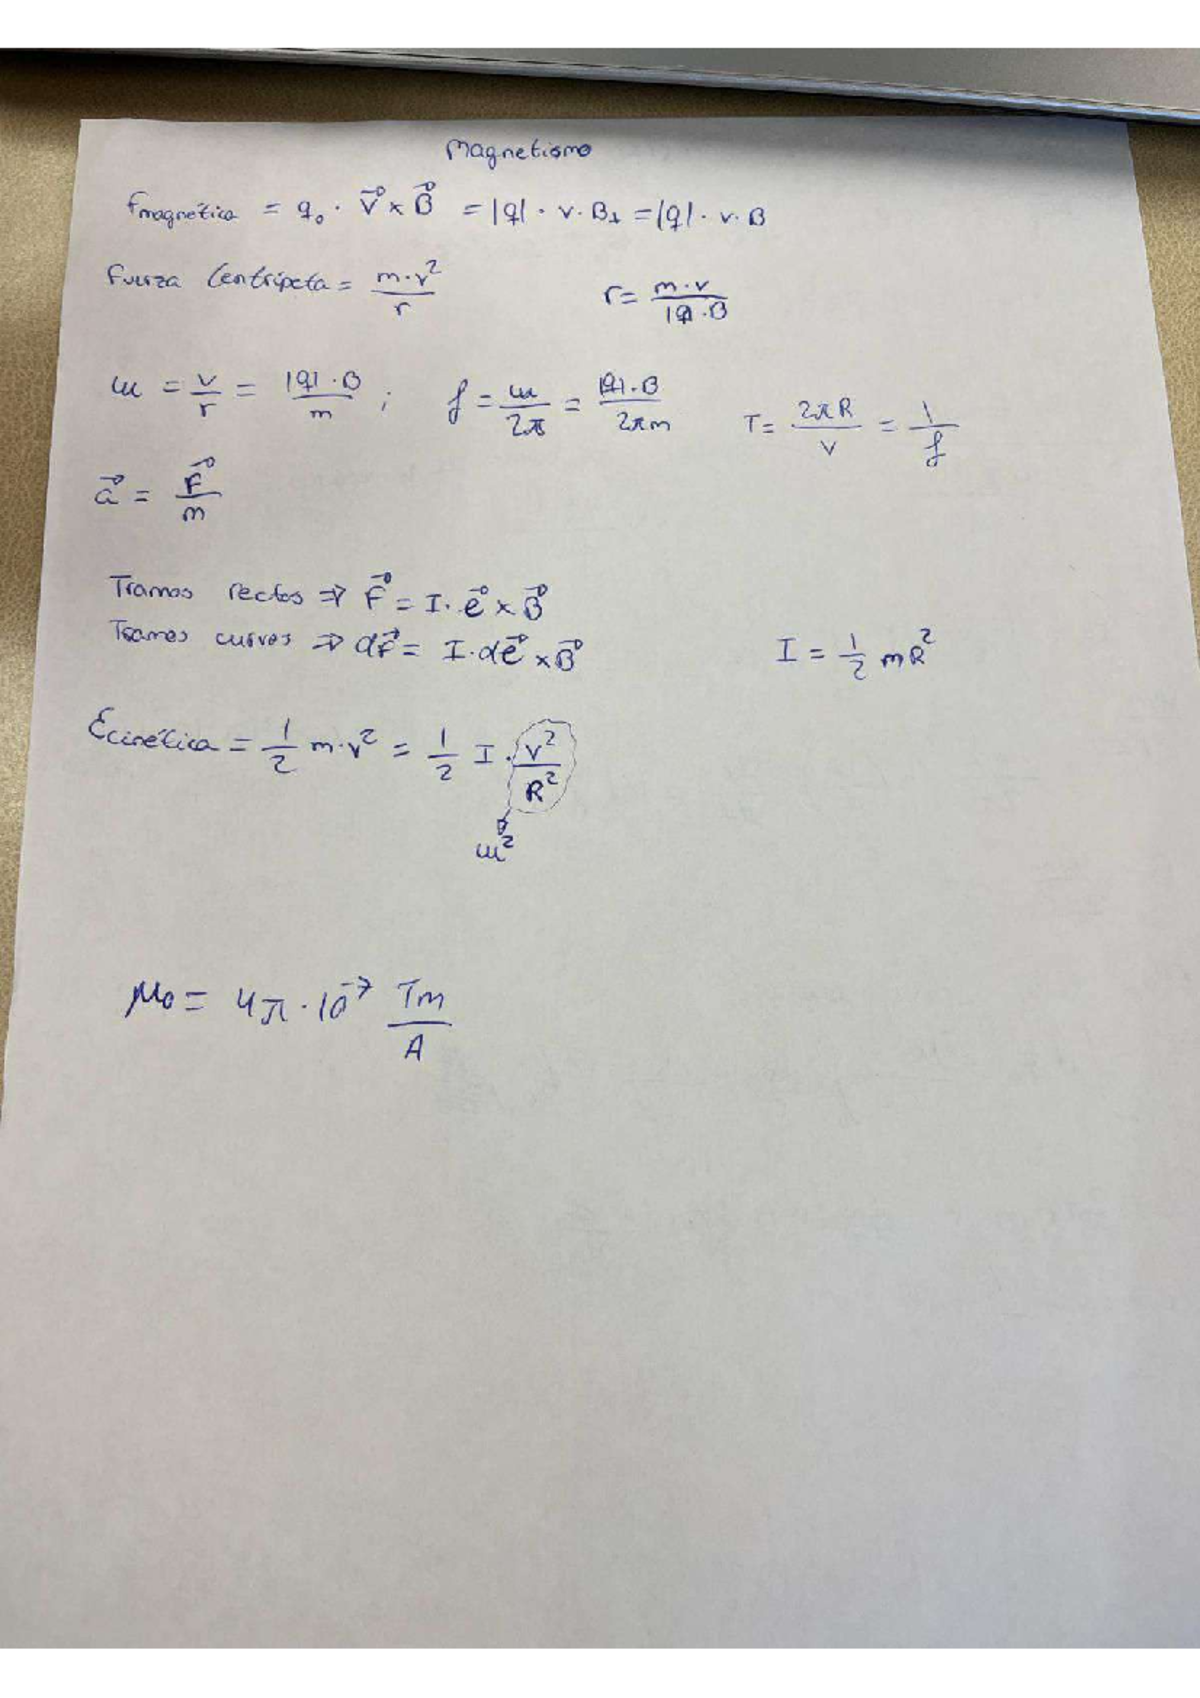 Magnetismo
Fmagnética = q₀ · v⃗ × B⃗ = |q| · v · B⊥ = |q| · v · B
Fuerza Centrípeta = m·v²/r    r = m·v/|q|·B
ω = v/r = |q|·B/m ; f = ω/2π = |q|·B/2πm    T = 2πR/v = 1/f
a⃗ = F⃗/m
Tramos rectos ⇒ F⃗ = I · ℓ⃗ × B⃗
Tramos curvos ⇒ dF⃗ = I · dℓ⃗ × B⃗    I = 1/2 mR²
Ecinética = 1/2 m·v² = 1/2 I · v²/R²
ω²
μ₀ = 4π · 10⁻⁷ Tm/A